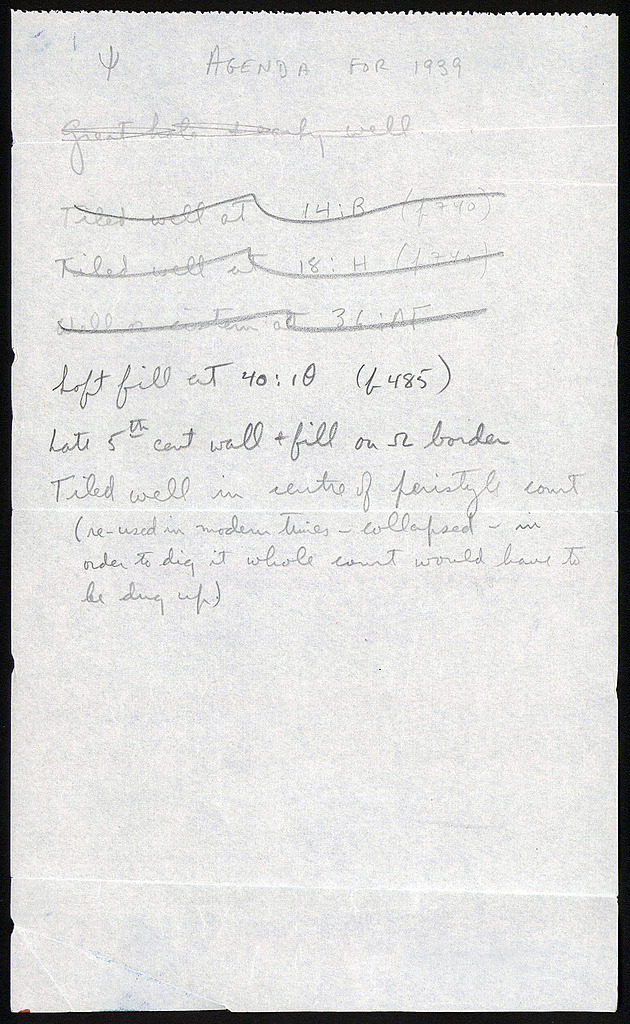 Ψ AGENDA FOR 1939
Great hole + early well
Tiled well at 14:B (p740)
Tiled well at 18:H (p740)
Well or cistern at 36:ΛΓ
Loft fill at 40:10 (p485)
Late 5th cent wall + fill on Ω border
Tiled well in centre of peristyle court
(re-used in modern times – collapsed – in
order to dig it whole court would have to
be dug up)